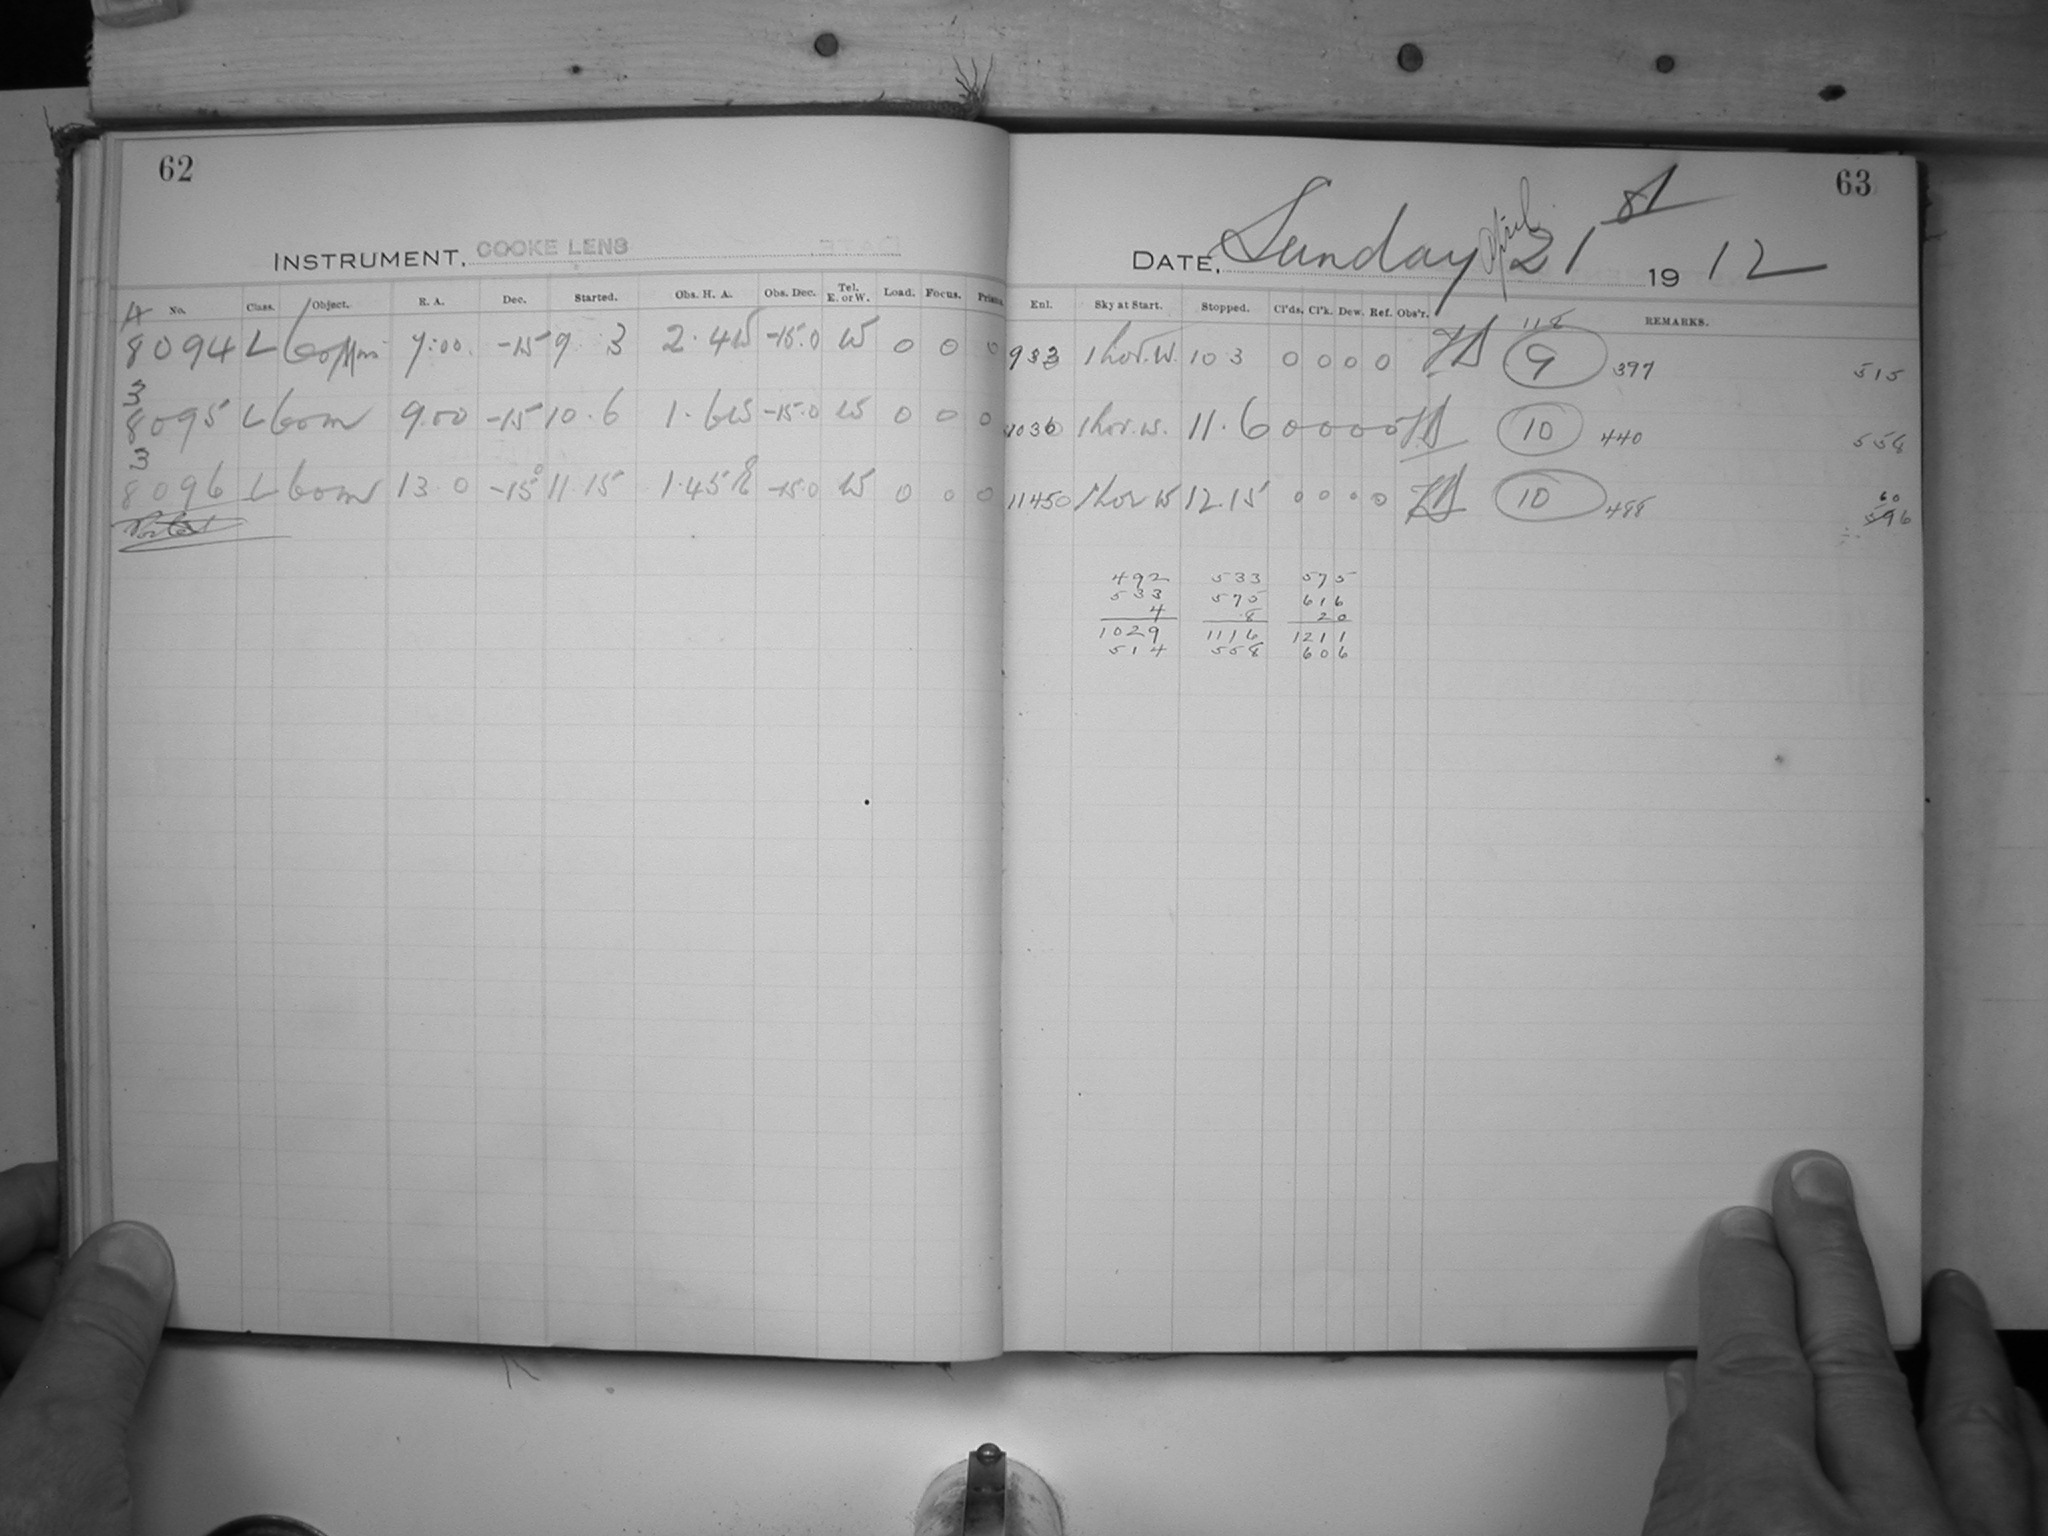 62
INSTRUMENT. COOKE LENS
No. Class. Object. R. A. Dec. Started. Obs. H. A. Obs. Dec. Tel. E. or W. Load. Focus. Prisms
A
8094 L 7:00 -15 9 3 2.4W -15.0 W 0 0 0
3
8095 L 9.00 -15 10.6 1.6W -15.0 W 0 0 0
3
8096 L 13 0 -15° 11.15 1.45E -15.0 W 0 0 0
63
DATE, Sunday April 21st 1912
Enl. Sky at Start. Stopped. Cl'ds. Cl'k. Dew. Ref. Obs'r. REMARKS.
118
933 1 hor. W. 10 3 0 0 0 0 9 397 515
1036 1 hor. W. 11.6 0 0 0 0 10 440 558
11450 1 hor W 12.15 0 0 0 0 10 488 60 596
492 533 575
533 575 616
4 8 20
1029 1116 1211
514 558 606